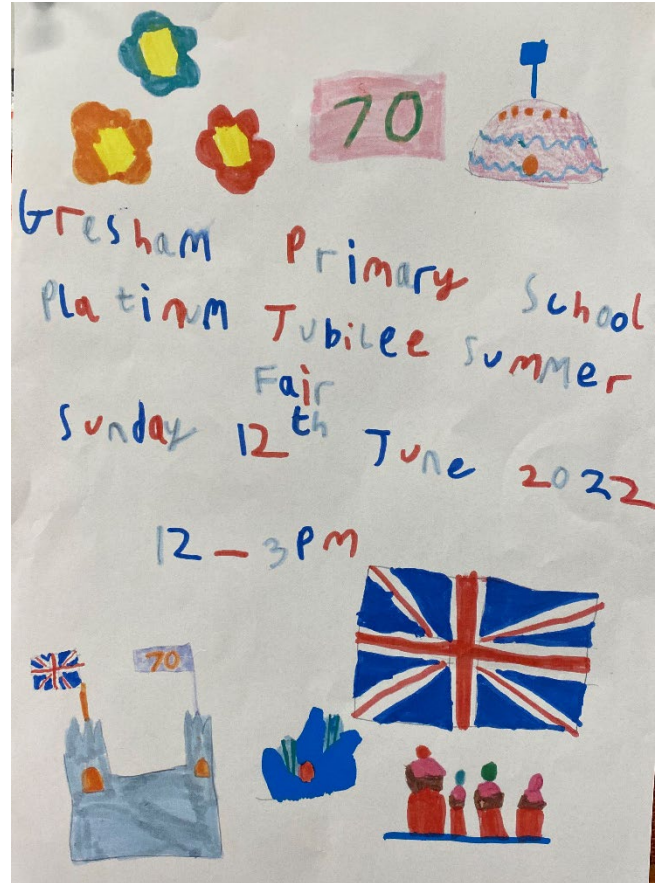 70
Gresham Primary School
Platinum Jubilee Summer
Fair
Sunday 12th June 2022
12-3PM
70